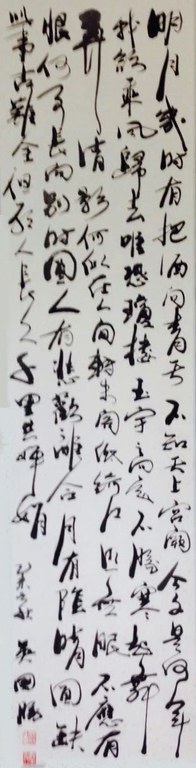 明月幾時有把酒問青天不知天上宮闕今夕是何年
我欲乘風歸去唯恐瓊樓玉宇高處不勝寒起舞
弄清影何似在人間轉朱閣低綺戶照無眠不應有
恨何事長向別時圓人有悲歡離合月有陰晴圓缺
此事古難全但願人長久千里共嬋娟